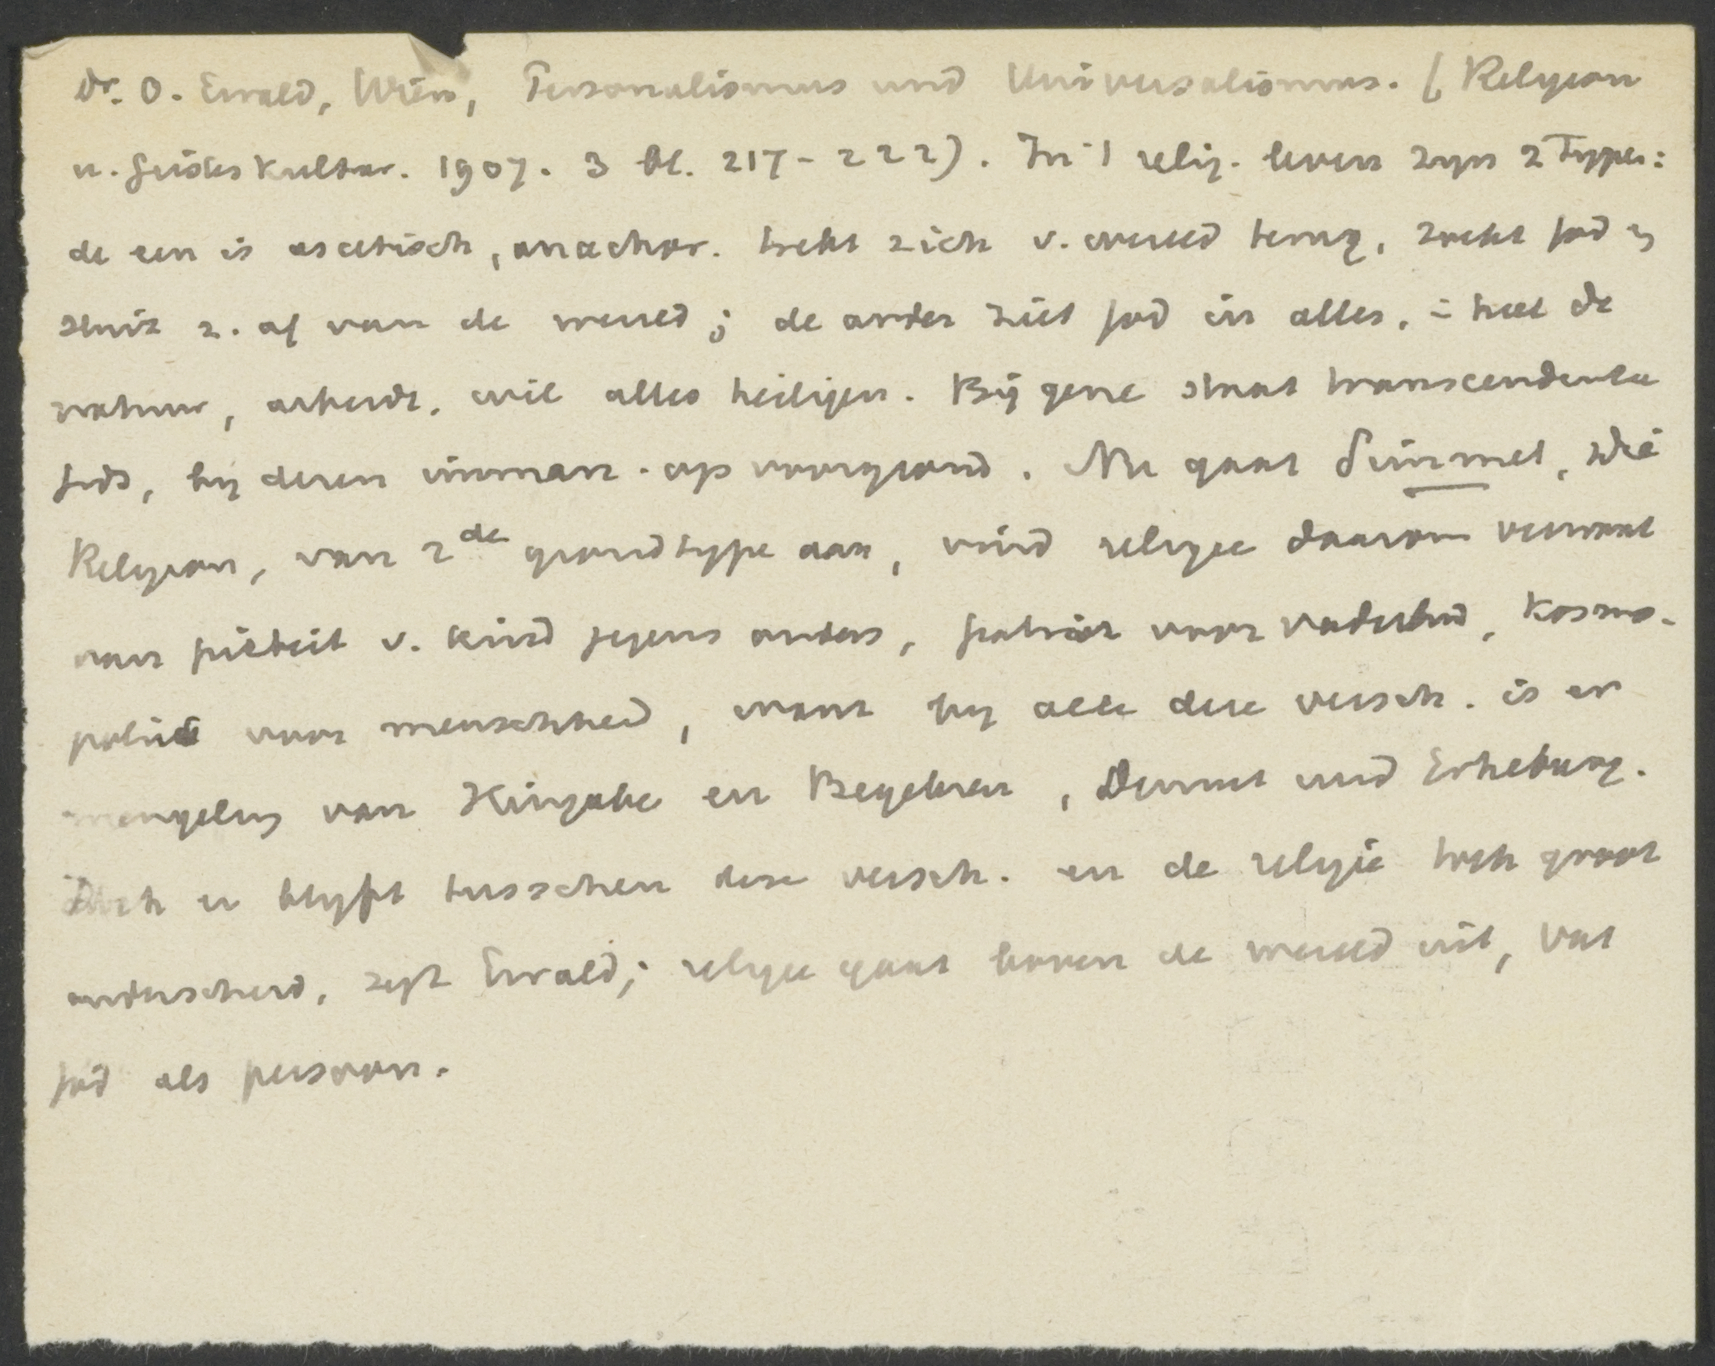 Dr. O. Ewald, Wien, Personalismus und Universalismus. (Religion
u. Geisteskultur. 1907. 3 bl. 217-222). In 't relig. leven zijn 2 Typen:
de een is ascetisch, anachor. trekt zich v. wereld terug, zoekt God en
sluit z. af van de wereld; de ander ziet God in alles, in heel de
natuur, arbeidt. wil alles heiligen. Bij gene staat transcendentie
Gods, bij dezen imman. op voorgrond. Nu gaat Simmel, Die
Religion, van 2de grondtype aan, vind religie daarom verwant
van piëteit v. kind jegens ouders, patriot voor vaderland, kosmo-
poliet voor menschheid, want bij alle deze versch. is er
mengeling van Hingabe en Begehren, Demut und Erhebung.
Doch er blijft tusschen deze versch. en de religie toch groot
onderscheid, zegt Ewald; religie gaat boven de wereld uit, vat
God als persoon.